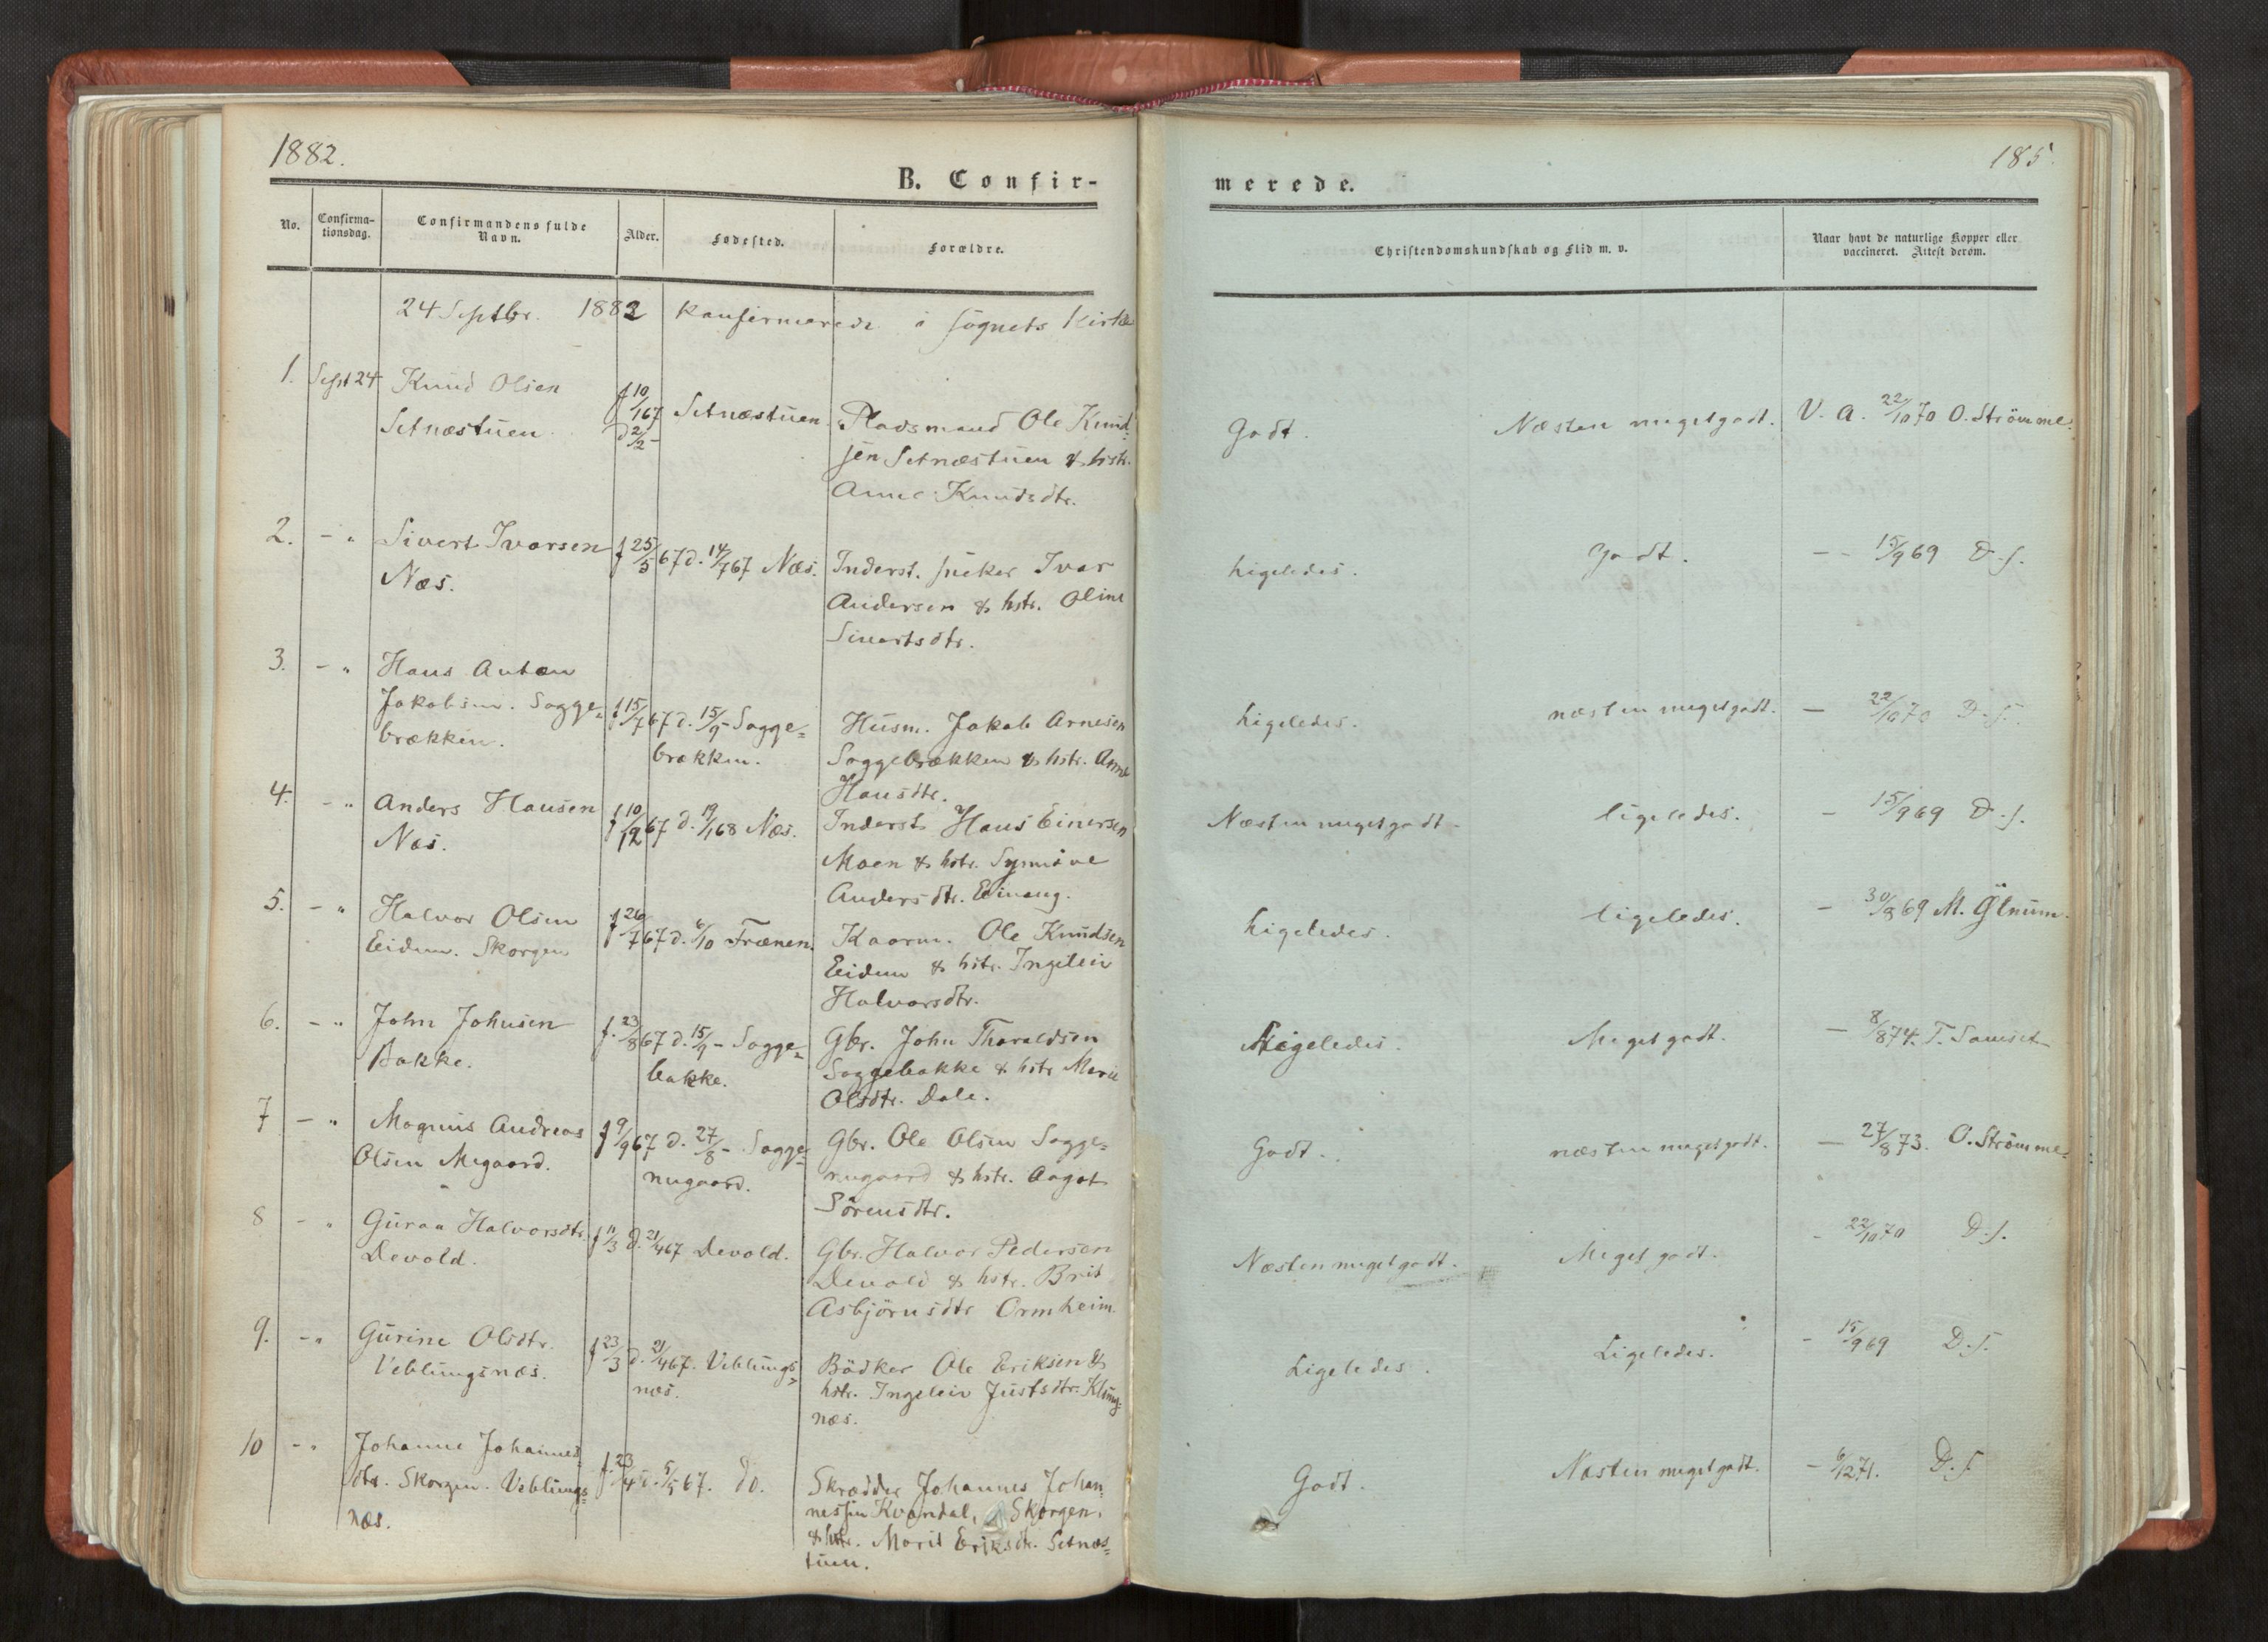 1882.
B. Confir-
No.
Confirma-
tionsdag.
Confirmandens fulde
Navn.
Alder.
Fødested.
Forældre.
24 Septbr. 1882 Konfirmerede i Sognets Kirke
1. Sept 24 Knud Olsen
Setnæstuen f 10/1 67 d 2/2 - Setnæstuen Pladsmand Ole Knud=
sen Setnæstuen & hstr.
Anne Knudsdtr.
2. - " Sivert Ivarsen f 25/5 67 d. 14/7 67 Næs. Inderst. Ivar
Næs. Andersen & hstr. Oline
Sivertsdtr.
3. - " Hans Anton
Jakobsen. Sogge= f 15/7 67 d. 15/9 - Sogge= Husm. Jakob Arnesen
brækken. brækken. Soggebrækken & hstr. Anne
Hansdtr.
4. - " Anders Hansen f 10/12 67 d. 19/1 68 Næs. Inderst Hans Einersen
Næs. Moen & hstr. Synnöve
Andersdtr.
5. - " Halvor Olsen f 26/7 67 d. 6/10 Frænen. Kaarm. Ole Knudsen
Eidem. Skorgen Eidem & hstr. Ingelein
Halvorsdtr.
6. - " John Johnsen f. 23/8 67 d. 15/9 - Sogge= Gbr. John Tharaldsen
Bakke. bakke. Soggebakke & hstr Marie
Olsdtr. Dale.
7 - " Magnus Andreas f 9/9 67 d. 27/8 - Sogge= Gbr. Ole Olsen Sogge=
Olsen Megaard. nugaard. nugaard & hstr. Aagot
Sörensdtr.
8 - " Guraa Halvorsdtr. f 11/3 d. 21/4 67 Devold. Gbr. Halvor Pedersen
Devold. Devold & hstr. Brit
Asbjörnsdtr Ormheim.
9. - " Gurine Olsdtr. f 23/3 d. 21/4 67. Veblungs= Bödker Ole Eriksen &
Veblungsnæs. næs. hstr. Ingelein Justsdtr. Klung=
næs.
10 - " Johanne Johannes=
dtr. Skorgen. Veblungs= f. 23/4 d. 5/5 67. do. Skrædder Johannes Johan=
næs. nessen Kvandal, Skorgen.
& hstr. Marit Eriksdtr. Setnæs=
tuen.
185.
merede.
Christendomskundskab og Flid m. v.
Naar havt de naturlige Kopper eller
vaccineret. Attest derom.
Godt. Næsten megetgodt. V. A. 22/10 70 O. Strömme.
Ligeledes. Godt. - - 15/9 69 D. s.
Ligeledes. næsten megetgodt. - 22/10 70 D. s.
Næsten megetgodt - ligeledes. - 15/9 69 D. s.
Ligeledes. ligeledes. - 30/8 69 M.
Ligeledes. Meget godt. - 8/8 74. T.
Godt. næsten megetgodt. - 27/8 73. O. Strömme.
Næsten megetgodt. Meget godt. - 22/10 70 D. s.
Ligeledes. Ligeledes. - 15/9 69 D. s.
Godt. Næsten megetgodt. - 6/12 71. D. s.